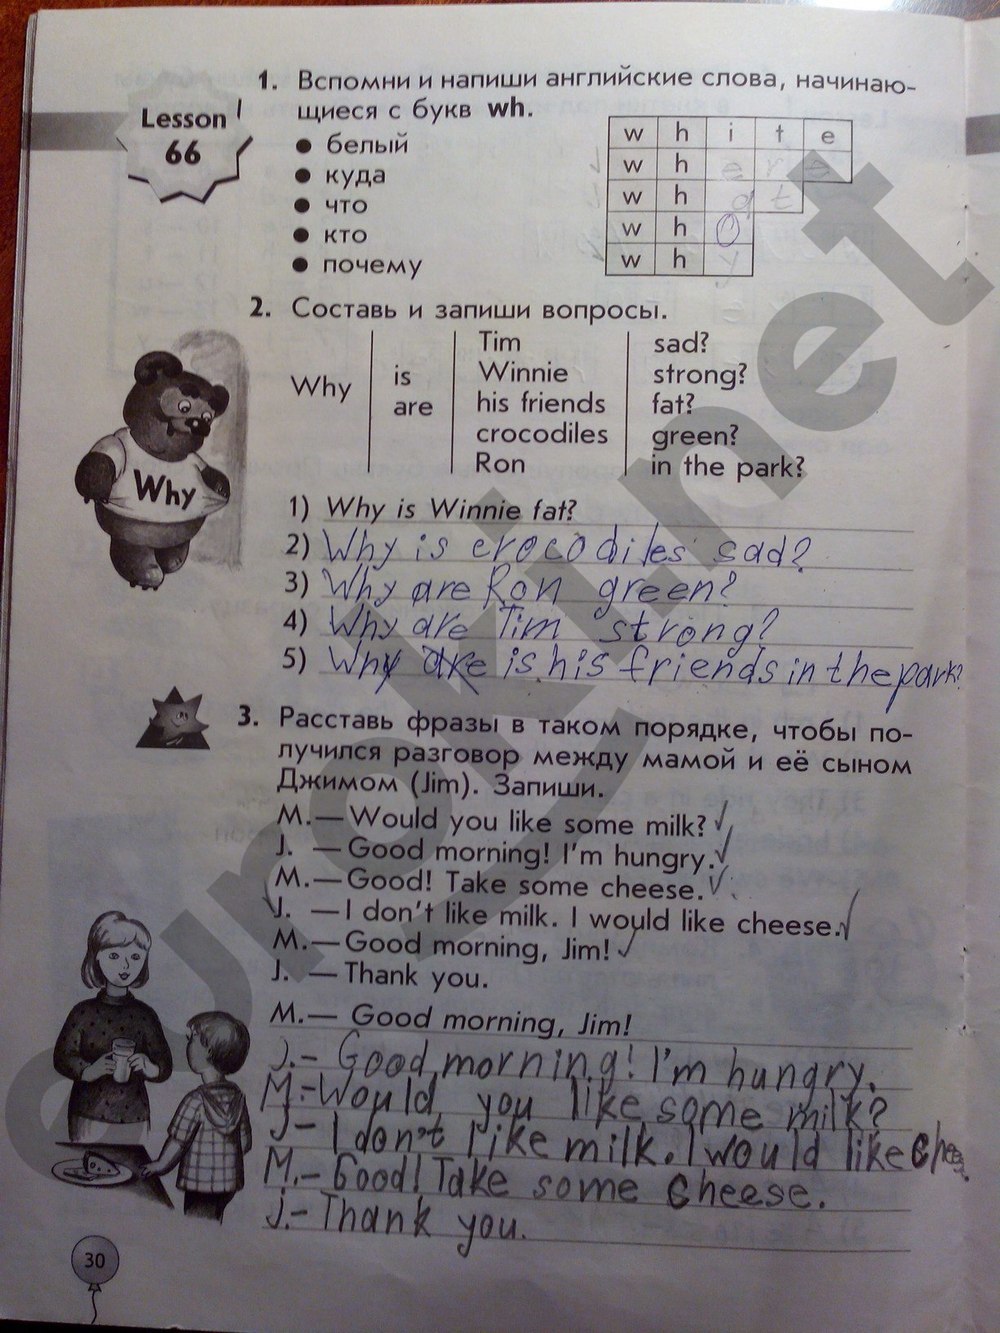 1. Вспомни и напиши английские слова, начинаю-
щиеся с букв wh.
Lesson
66
● белый
● куда
● что
● кто
● почему
w h i t e
w h e r e
w h a t
w h o
w h y
2. Составь и запиши вопросы.
Why
is
are
Tim
Winnie
his friends
crocodiles
Ron
sad?
strong?
fat?
green?
in the park?
Why
1) Why is Winnie fat?
2) Why is crocodiles sad?
3) Why are Ron green?
4) Why are Tim strong?
5) Why are is his friends in the park?
3. Расставь фразы в таком порядке, чтобы по-
лучился разговор между мамой и её сыном
Джимом (Jim). Запиши.
M.— Would you like some milk?
J. — Good morning! I'm hungry.
M.— Good! Take some cheese.
J. — I don't like milk. I would like cheese.
M.— Good morning, Jim!
J. — Thank you.
M.— Good morning, Jim!
J.- Good morning! I'm hungry.
M.-Would you like some milk?
J- I don't like milk. I would like cheese.
M.- Good! Take some cheese.
J.- Thank you.
30
eurokinet